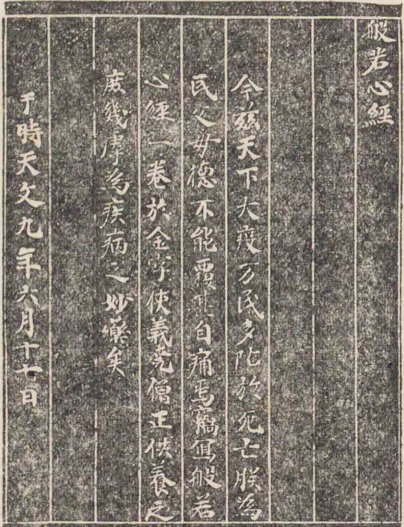 般若心經
今茲天下大疫万民多阽於死亡朕為
民父母徳不能覆甚自痛焉竊寫般若
心經一巻於金字使義尭僧正供養之
庶幾虖為疾病之妙藥矣
于時天文九年六月十七日